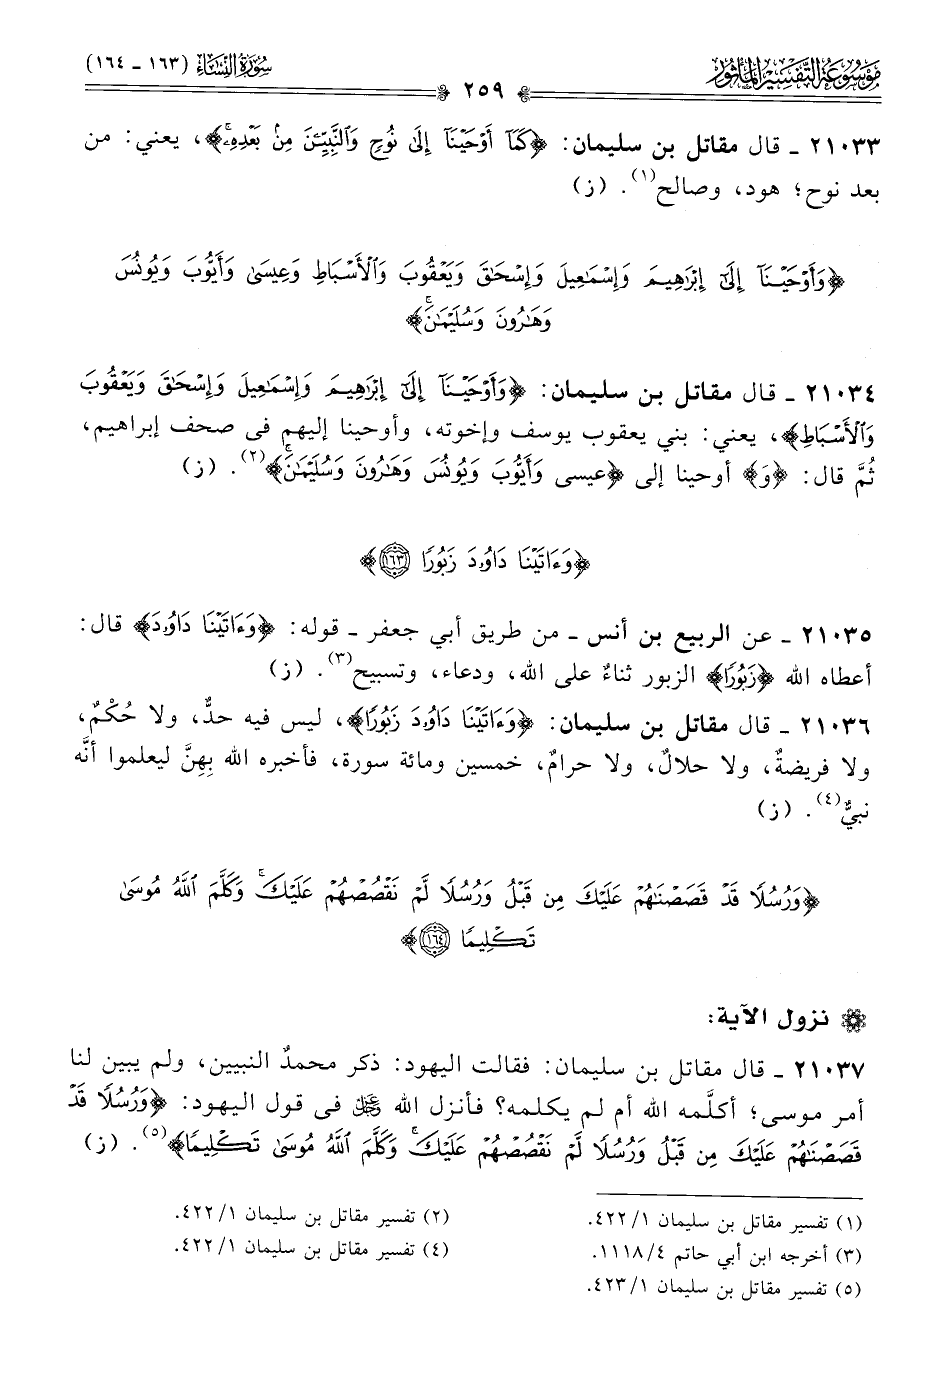 موسوعة التفسير المأثور
سورة النساء (١٦٣ - ١٦٤)
٢٥٩
٢١٠٣٣ - قال مقاتل بن سليمان: ﴿كَمَآ أَوْحَيْنَآ إِلَىٰ نُوحٍ وَٱلنَّبِيِّـۧنَ مِنۢ بَعْدِهِۦۚ﴾، يعني: من
بعد نوح؛ هود، وصالح(١). (ز)
﴿وَأَوْحَيْنَآ إِلَىٰٓ إِبْرَٰهِيمَ وَإِسْمَٰعِيلَ وَإِسْحَٰقَ وَيَعْقُوبَ وَٱلْأَسْبَاطِ وَعِيسَىٰ وَأَيُّوبَ وَيُونُسَ
وَهَٰرُونَ وَسُلَيْمَٰنَۚ﴾
٢١٠٣٤ - قال مقاتل بن سليمان: ﴿وَأَوْحَيْنَآ إِلَىٰٓ إِبْرَٰهِيمَ وَإِسْمَٰعِيلَ وَإِسْحَٰقَ وَيَعْقُوبَ
وَٱلْأَسْبَاطِ﴾، يعني: بني يعقوب يوسف وإخوته، وأوحينا إليهم في صحف إبراهيم،
ثُمَّ قال: ﴿وَ﴾ أوحينا إلى ﴿عيسى وَأَيُّوبَ وَيُونُسَ وَهَٰرُونَ وَسُلَيْمَٰنَۚ﴾(٢). (ز)
﴿وَءَاتَيْنَا دَاوُۥدَ زَبُورًا ١٦٣﴾
٢١٠٣٥ - عن الربيع بن أنس - من طريق أبي جعفر - قوله: ﴿وَءَاتَيْنَا دَاوُۥدَ﴾ قال:
أعطاه الله ﴿زَبُورًا﴾ الزبور ثناءٌ على الله، ودعاء، وتسبيح(٣). (ز)
٢١٠٣٦ - قال مقاتل بن سليمان: ﴿وَءَاتَيْنَا دَاوُۥدَ زَبُورًا﴾، ليس فيه حدٌّ، ولا حُكْمٌ،
ولا فريضةٌ، ولا حلالٌ، ولا حرامٌ، خمسين ومائة سورة، فأخبره الله بِهِنَّ ليعلموا أنَّه
نبيٌّ(٤). (ز)
﴿وَرُسُلًا قَدْ قَصَصْنَٰهُمْ عَلَيْكَ مِن قَبْلُ وَرُسُلًا لَّمْ نَقْصُصْهُمْ عَلَيْكَۚ وَكَلَّمَ ٱللَّهُ مُوسَىٰ
تَكْلِيمًا ١٦٤﴾
نزول الآية:
٢١٠٣٧ - قال مقاتل بن سليمان: فقالت اليهود: ذكر محمدٌ النبيين، ولم يبين لنا
أمر موسى؛ أكلَّمه الله أم لم يكلمه؟ فأنزل الله ﷿ في قول اليهود: ﴿وَرُسُلًا قَدْ
قَصَصْنَٰهُمْ عَلَيْكَ مِن قَبْلُ وَرُسُلًا لَّمْ نَقْصُصْهُمْ عَلَيْكَۚ وَكَلَّمَ ٱللَّهُ مُوسَىٰ تَكْلِيمًا﴾(٥). (ز)
(١) تفسير مقاتل بن سليمان ١/ ٤٢٢.
(٢) تفسير مقاتل بن سليمان ١/ ٤٢٢.
(٣) أخرجه ابن أبي حاتم ٤/ ١١١٨.
(٤) تفسير مقاتل بن سليمان ١/ ٤٢٢.
(٥) تفسير مقاتل بن سليمان ١/ ٤٢٣.